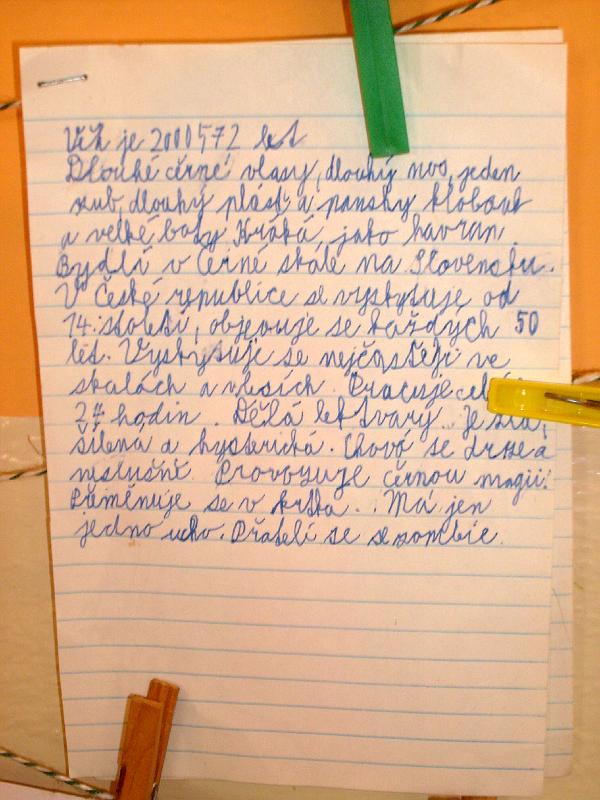 Věk je 2000572 let
Dlouhé černé vlasy, dlouhý nos, jeden
zub, dlouhý plášť a panský klobouk
a velké boty. Kráká, jako havran.
Bydlí v Černé skále na Slovensku.
V České republice se vyskytuje od
14. století, objevuje se každých 50
let. Vyskytuje se nejčastěji ve
skalách a vlesích. Pracuje
24 hodin. Dělá lektvary. Je zlá,
šílená a hysterická. Chová se drze a
neslušně. Provozuje černou magii.
Přeměňuje se v krtka. Má jen
jedno ucho. Přátelí se se zombie.